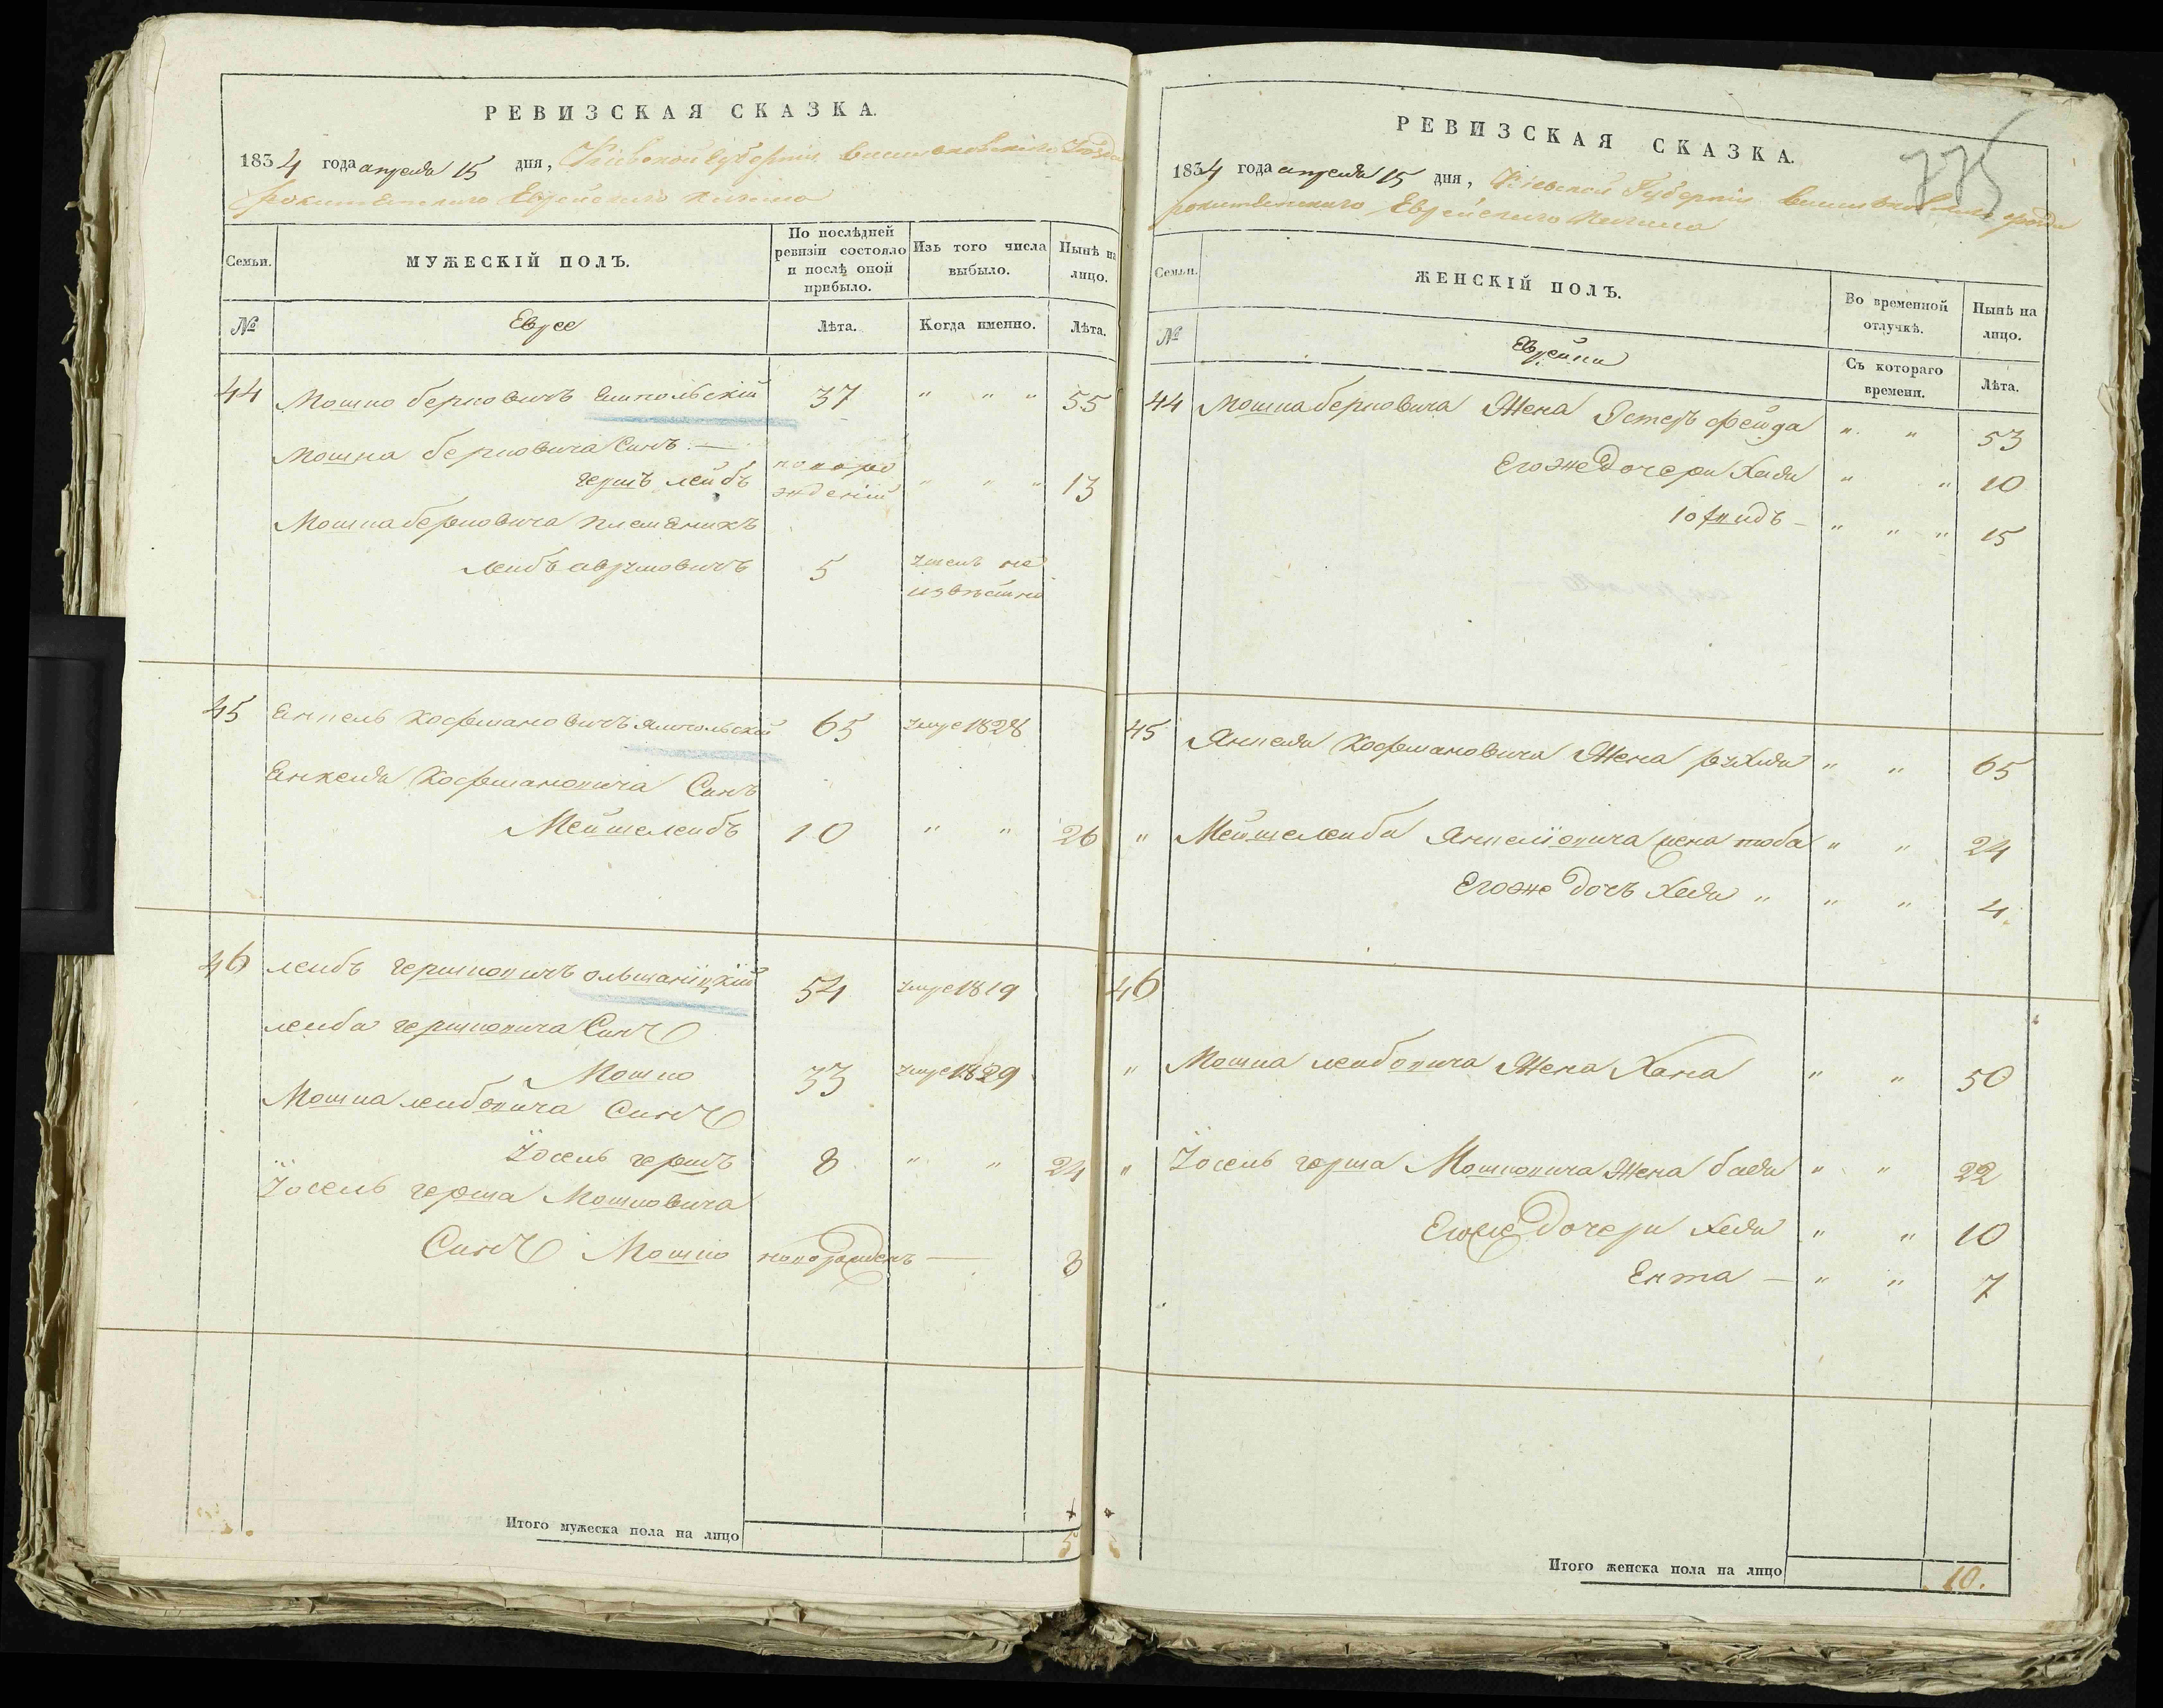 РЕВИЗСКАЯ СКАЗКА.
1834 года апреля 15 дня, Кіевской губерніи васильковского уезда
рокитянского Еврейского кагала
Семьи.
МУЖЕСКІЙ ПОЛЪ.
По послѣдней ревизіи состояло и послѣ оной прибыло.
Изъ того числа выбыло.
Нынѣ на лицо.
№
Еврее
Лѣта.
Когда именно.
Лѣта.
44 Мошко берковичъ ямпольскій 37 " " " 55
Мошка берковича Синъ —
гершъ лейбъ новорожденій " " " 13
Мошка берковича племеникъ
лейбъ аврумовичъ 5
неизвѣстно
45 Янкель Кофмановичъ ямпольскій 65 умре 1828
Янкеля Кофмановича Синъ
Мейшелейбъ 10 " " 26
46 лейбъ гершковичъ ольшаніцкій 54 умре 1819
лейба гершковича Синъ
Мошко 33 умре 1829
Мошка лейбовича Синъ
Їосель гершъ 8 " " 24
Їосель герша Мошковича
Синъ Мошко новорожденъ — 8
Итого мужеска пола на лицо 5
РЕВИЗСКАЯ СКАЗКА.
775
1834 года апреля 15 дня, Кіевской Губерніи васильковского уезда
рокитянского Еврейского кагала
Семьи.
ЖЕНСКІЙ ПОЛЪ.
Во временной отлучкѣ.
Нынѣ на лицо.
№
Еврейки
Съ котораго времени.
Лѣта.
44 Мошка берковича Жена Эстеръ фейга " " 53
Егоже дочери Хая " " 10
" " " 15
45 Янкеля Кофмановича Жена рухля " " 65
" Мейшелейба Янкелїовича жена тоба " " 24
Егоже дочъ Хая " " " 4
46
" Мошка лейбовича Жена Хана " " 50
" Їосель герша Мошковича Жена бася " " 22
Егоже дочери Хая " " 10
Ента — " " 7
Итого женска пола на лицо 10.